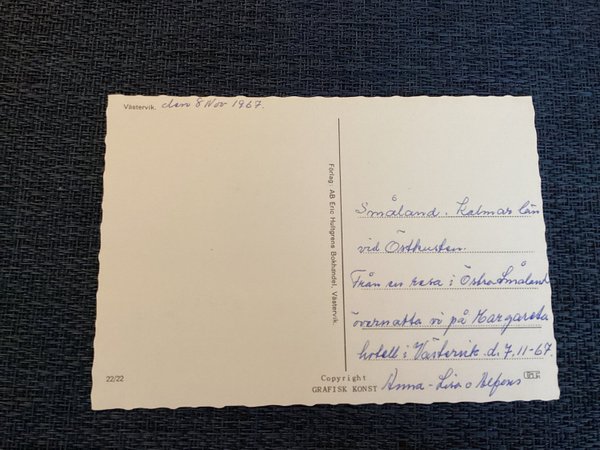 Västervik. den 8 Nov 1967.
Förlag: AB Eric Hultgrens Bokhandel, Västervik.
Småland. Kalmar län
vid Östkusten.
Från en resa i Östra Småland
övernatta vi på Margareta
hotell i Västervik d. 7.11-67.
Anna-Lisa o Alfons
22/22
Copyright
GRAFISK KONST